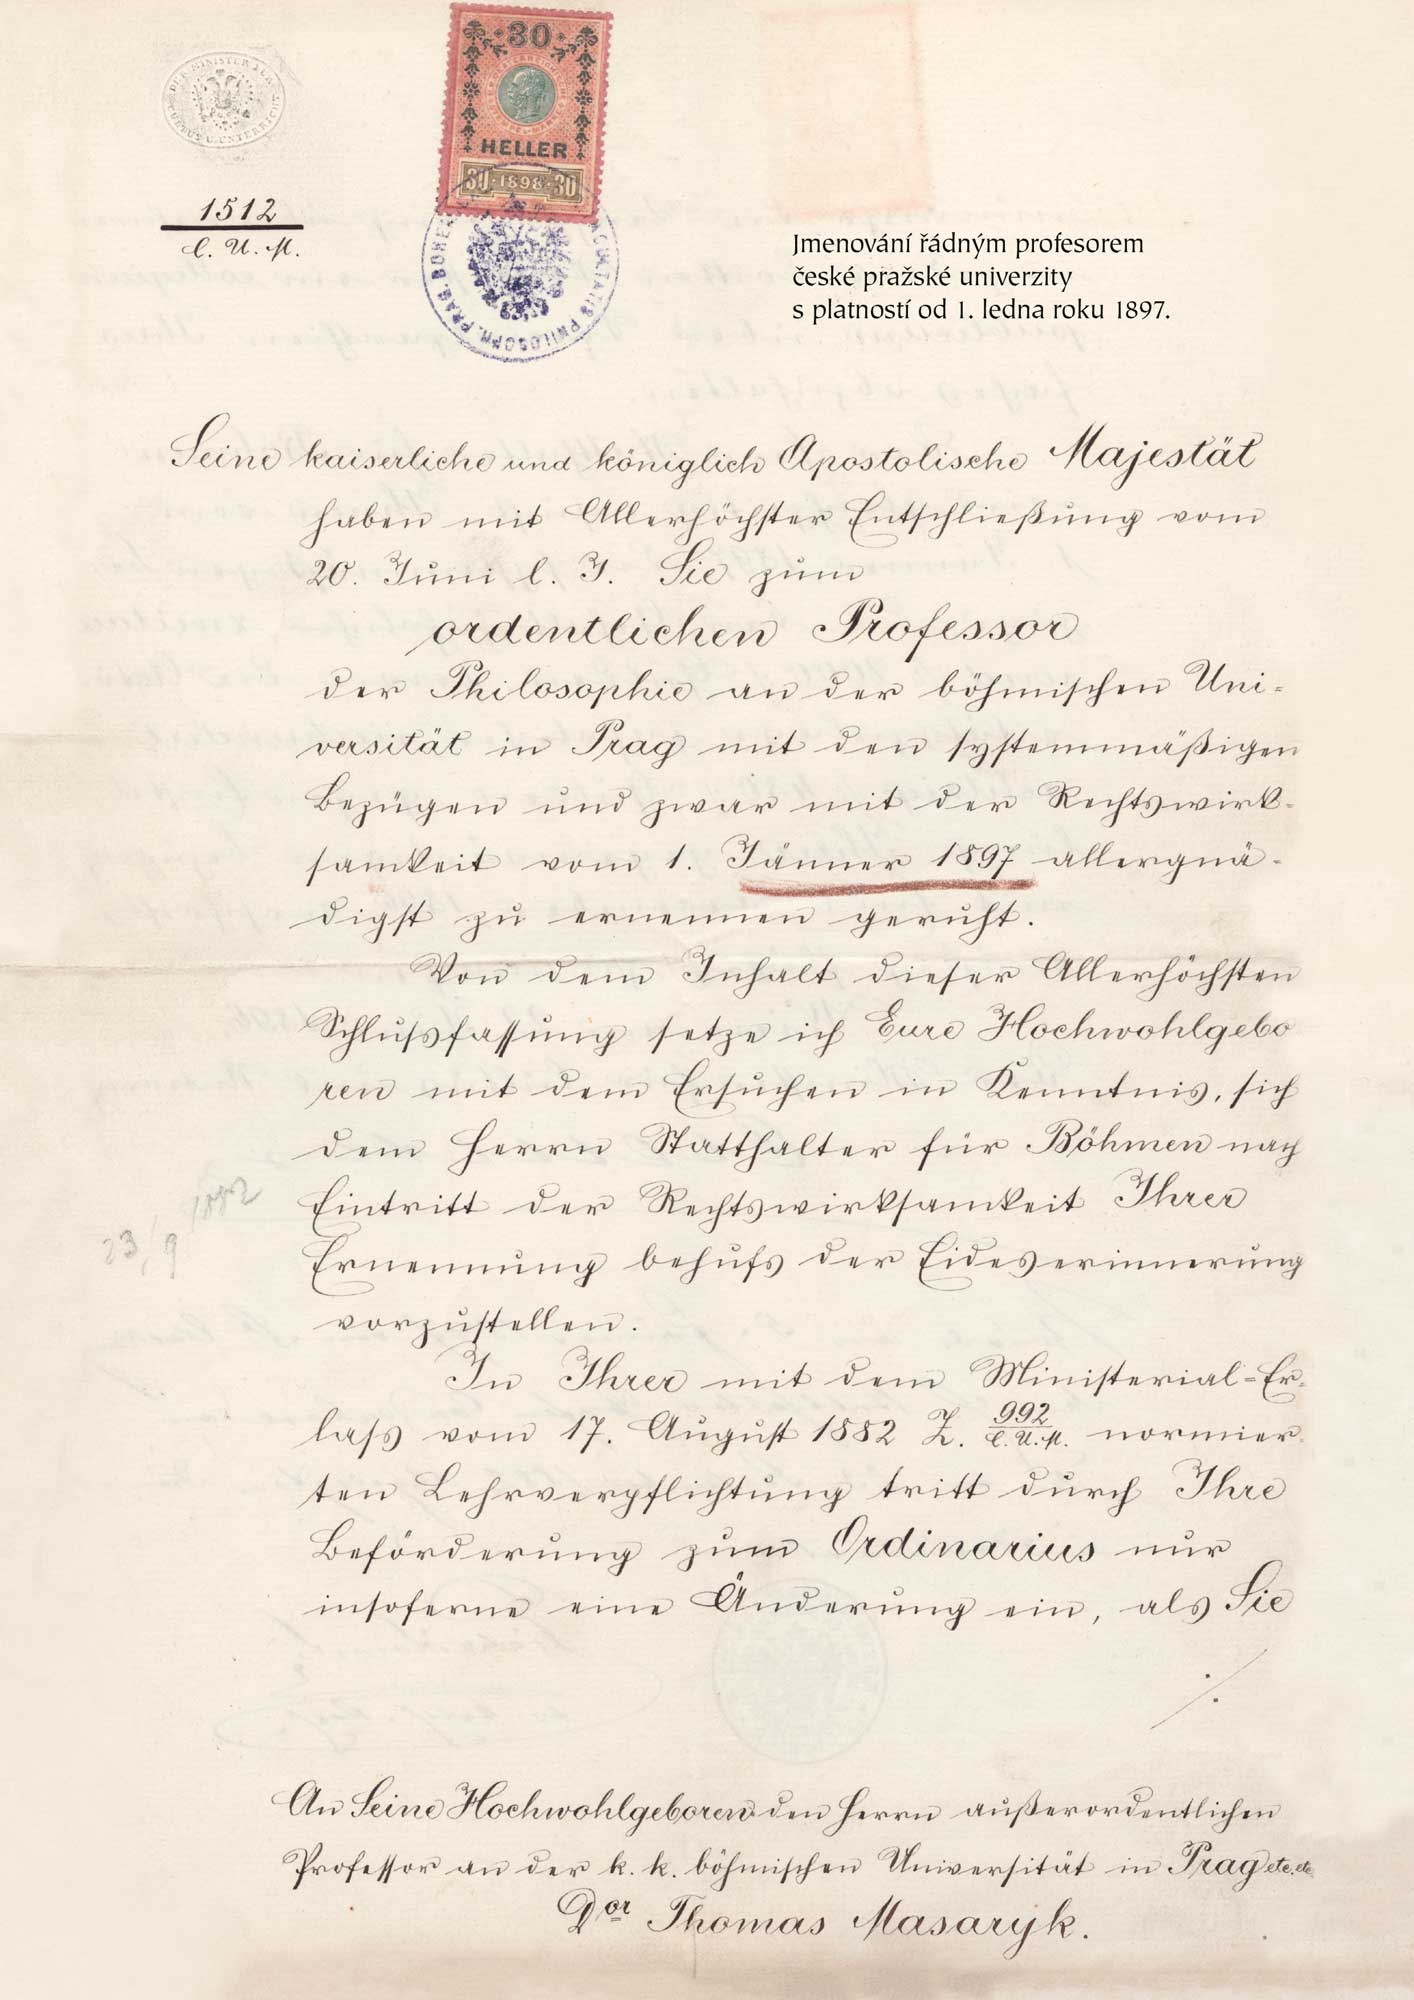 DER MINISTER FÜR CULTUS U. UNTERRICHT
30
HELLER
30 · 1898 · 30
PHILOSOPH. PRAG. BOHEM.
1512
C. U. M.
Jmenování řádným profesorem
české pražské univerzity
s platností od 1. ledna roku 1897.
Seine kaiserliche und königlich Apostolische Majestät
haben mit Allerhöchster Entschließung vom
20. Juni l. J. Sie zum
ordentlichen Professor
der Philosophie an der böhmischen Uni-
versität in Prag mit den systemmäßigen
Bezügen und zwar mit der Rechtswirk-
samkeit vom 1. Jänner 1897 allergnä-
digst zu ernennen geruht.
Von dem Inhalt dieser Allerhöchsten
Schlussfassung setze ich Eure Hochwohlgebo
ren mit dem Ersuchen in Kenntnis, sich
dem Herrn Statthalter für Böhmen nach
Eintritt der Rechtswirksamkeit Ihrer
Ernennung behufs der Eideserinnerung
vorzustellen.
23/9 1882
In Ihrer mit dem Ministerial-Er-
lass vom 17. August 1882 Z. 992/C. U. M. normier-
ten Lehrverpflichtung tritt durch Ihre
Beförderung zum Ordinarius nur
insoferne eine Änderung ein, als Sie
./.
An Seine Hochwohlgeboren den Herrn außerordentlichen
Professor an der k. k. böhmischen Universität in Prag etc. etc
Dor Thomas Masaryk.